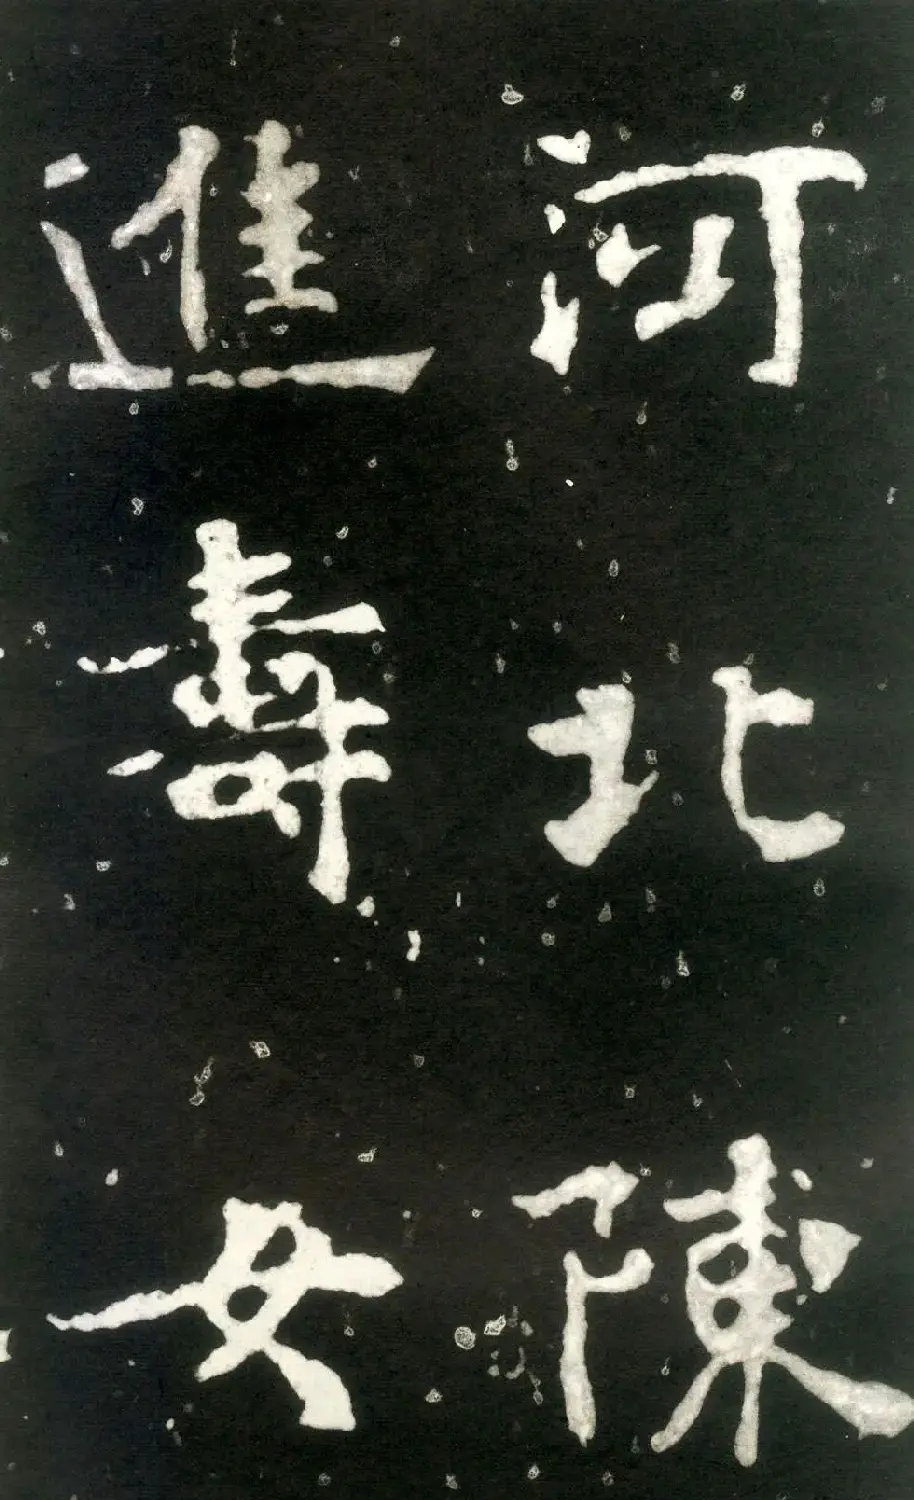 河北陳
進壽女